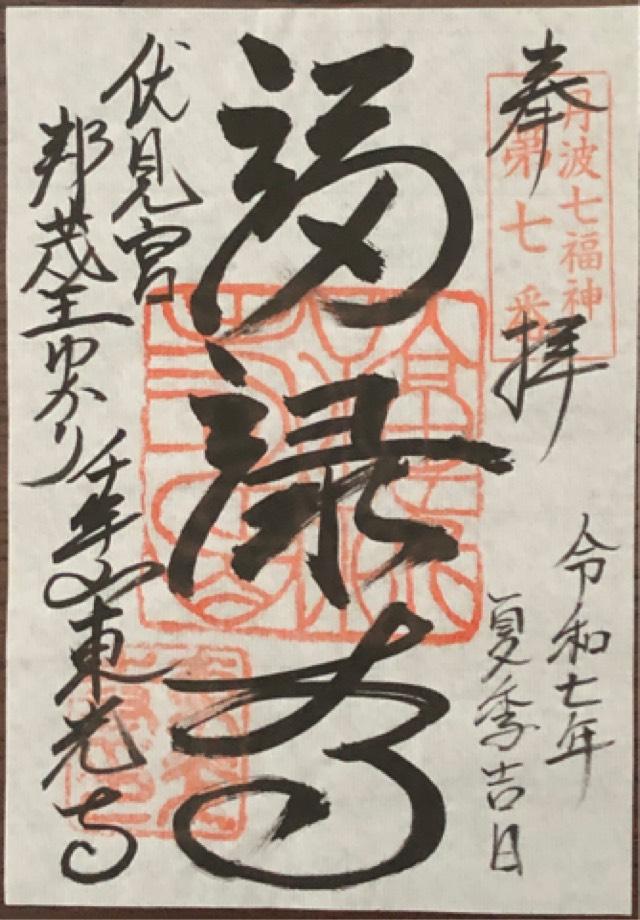 奉拝
丹波七福神
第七番
令和七年
夏季吉日
福禄寿
伏見宮
邦茂王ゆかり
千年山東光寺